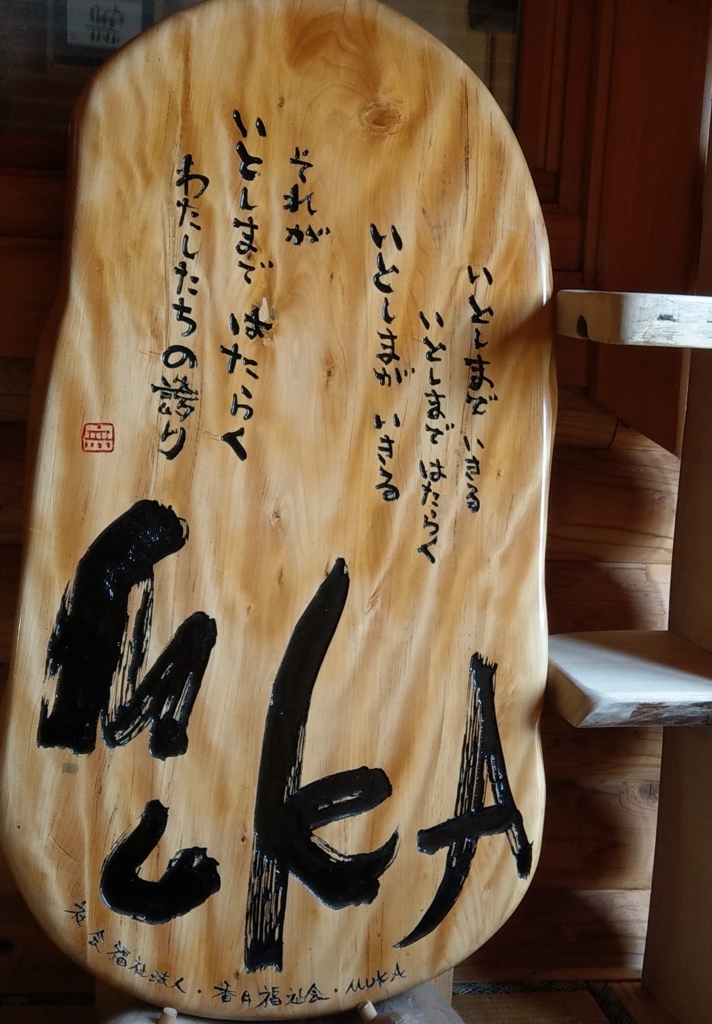 いとしまで いきる
いとしまで はたらく
いとしまが いきる
それが
いとしまで はたらく
わたしたちの誇り
MuKA
社会福祉法人・香月福祉会・MUKA